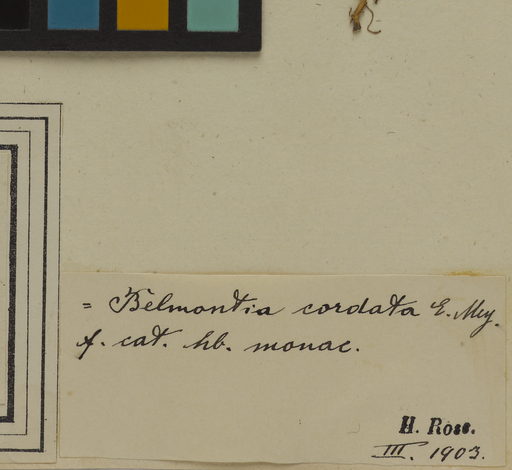 = Belmontia cordata E. Mey.
f. cat. hb. monac.
H. Ross.
III. 1903.